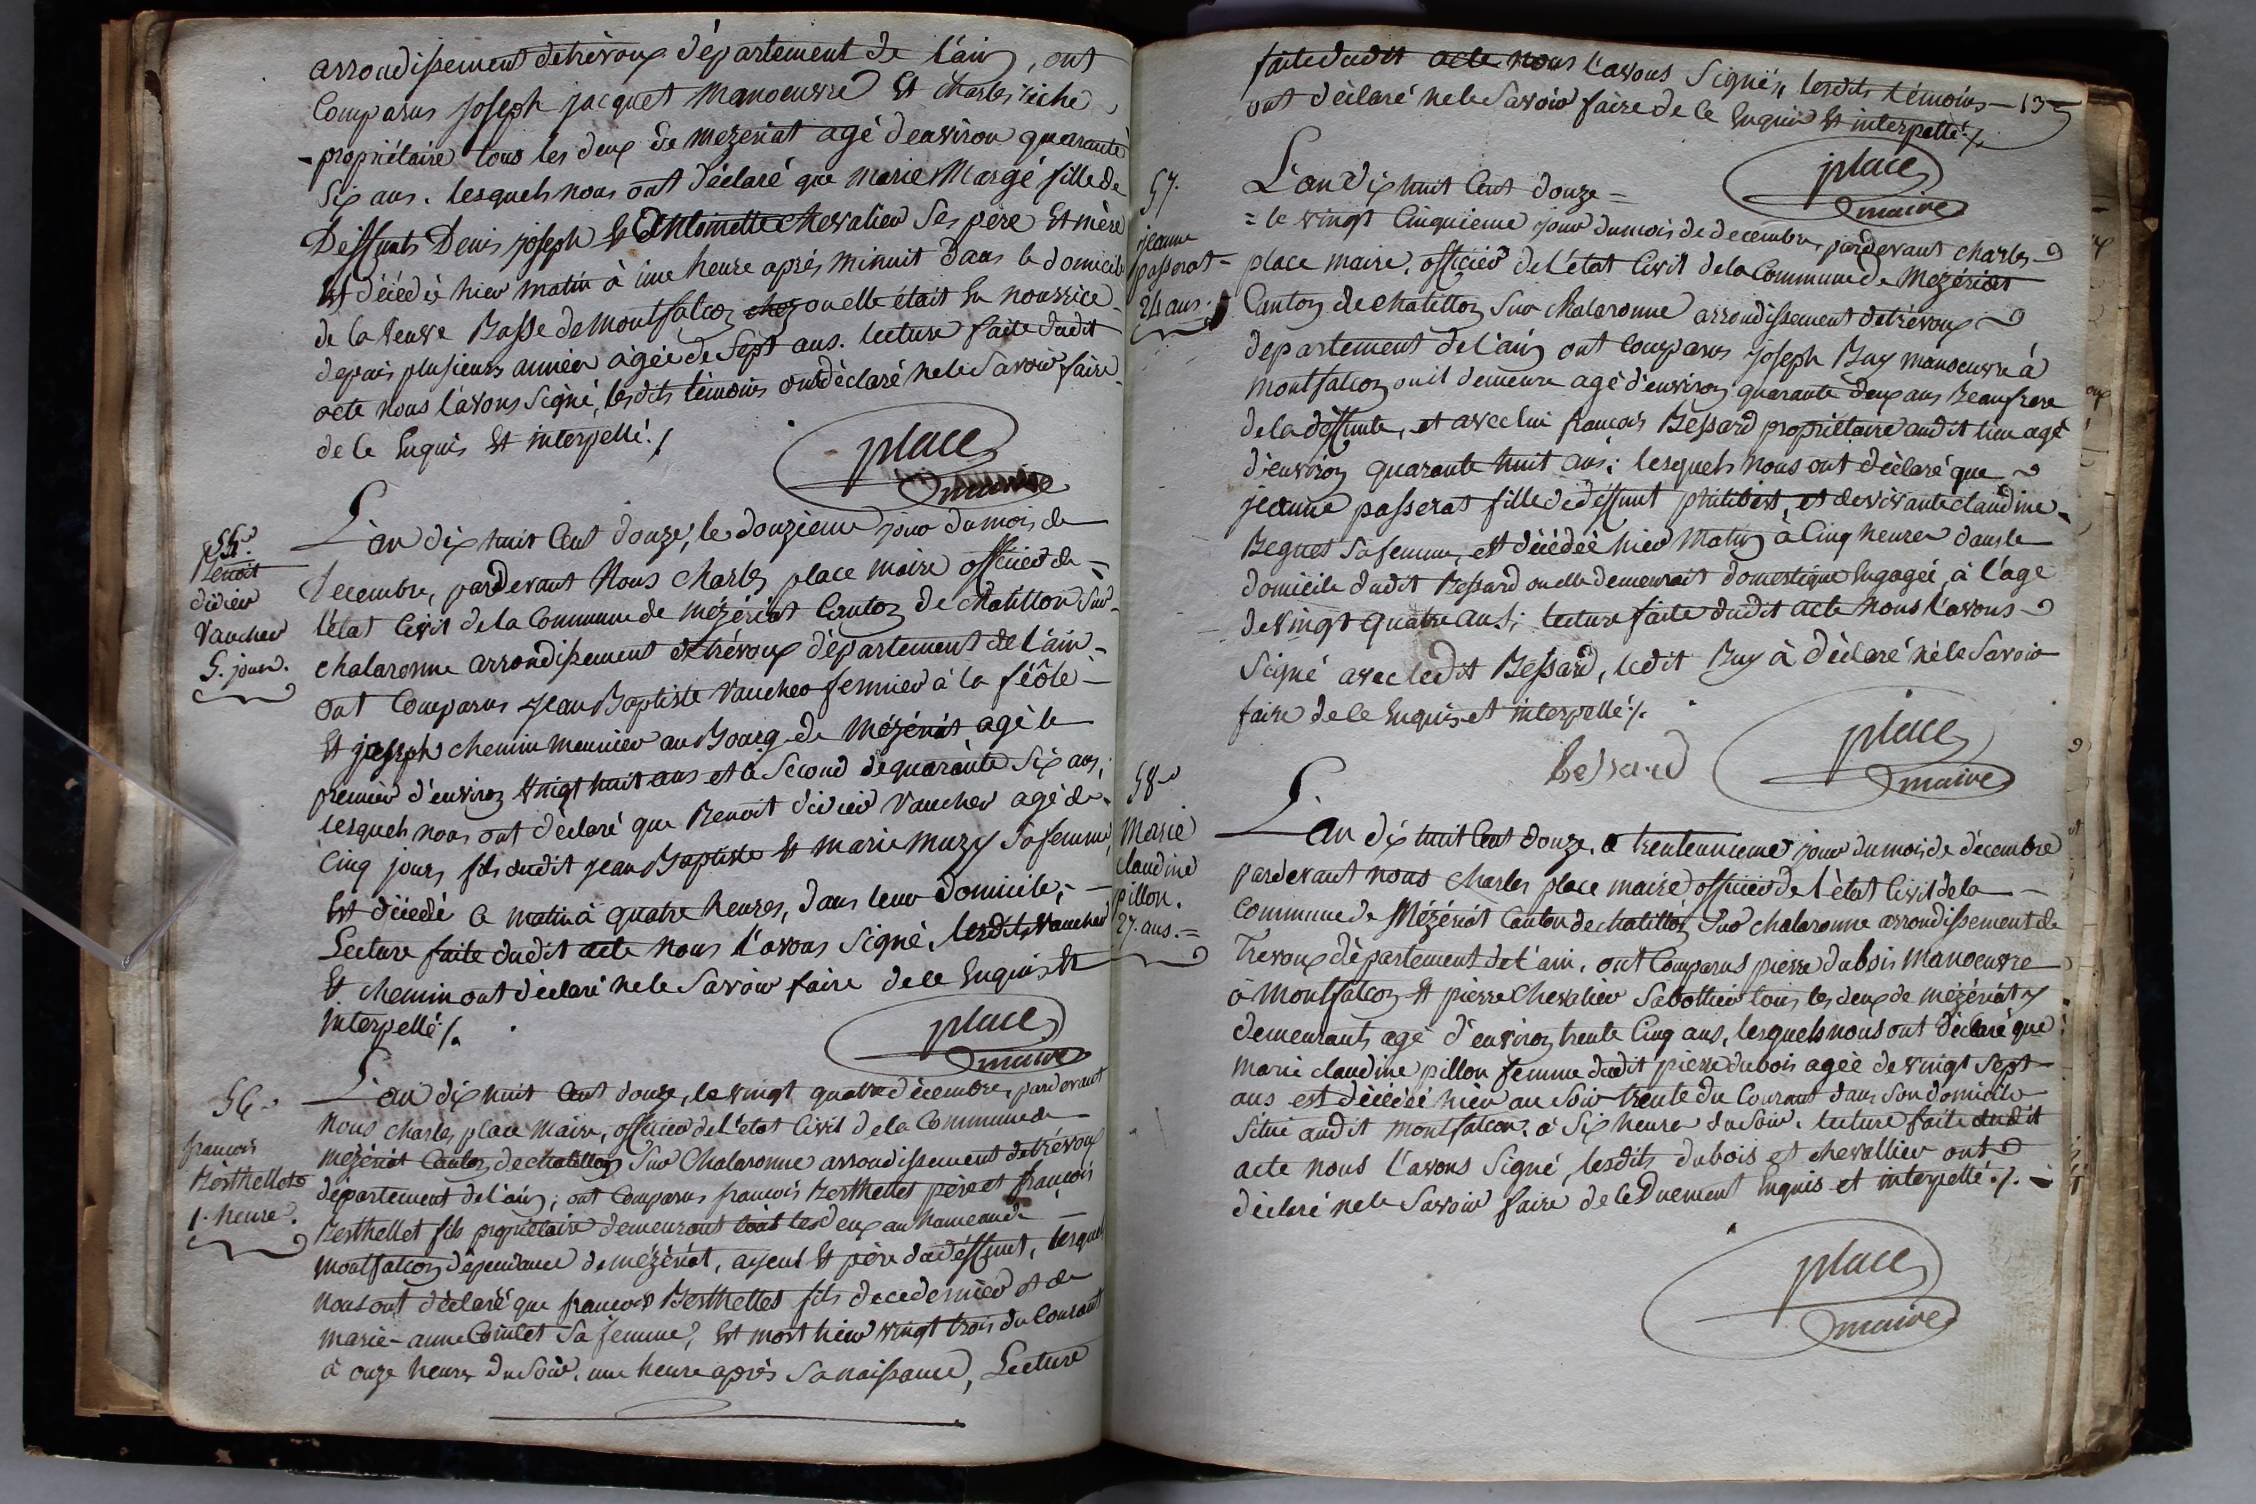 arrondissement detrévoux département de l'ain, ont
Comparus joseph jacquet Manoeuvre Et charles riche
-propriétaire tous les deux de mezeriat agé d'environ quarante
Six ans. lesquels nous ont déclaré que marie Margé fille de
Deffunts Denis joseph & Antoinette chevalier Ses père Et mère
Est décédée hier matin à une heure après minuit dans le domicile
de la veuve Basse de montfalcon chez ou elle était En nourrice
depuis plusieurs années agée de Sept ans. lecture faite dudit
acte nous l'avons Signé, lesdits témoins ont déclaré ne le Savoir faire
de ce Enquis Et interpellé./.
place
maire
55.
Benoit
didier
Vaucher
5. jours.
L'an dix huit Cent douze, le douzieme jour du mois de
decembre, pardevant Nous charles place maire officier de
l'état Civil de la Commune de mézériat Canton de chatillon Sur
chalaronne arrondissement detrévoux département de l'ain
ont Comparus jean Baptiste Vaucher fermier à la féôle
Et joseph chemin meunier au Bourg de Mézériat agé le
premier d'environ vingt huit ans et le Second de quarante Six ans,
lesquels nous ont déclaré que Benoit didier Vaucher agé de
Cinq jours, fils dudit jean Baptiste & marie muzy Sa femme,
Est décédé ce matin à quatre heures, dans leur domicile,
Lecture faite dudit acte nous l'avons Signé, lesdits Vaucher
Et chemin ont déclaré ne le Savoir faire de ce Enquis Et
interpellé./.
place
maire
56.
francois
Berthellet
1. heure.
L'an dix huit Cent douze, le vingt quatre décembre, pardevant
Nous charles place Maire, officier de l'état Civil de la Commune de
mézériat Canton de chatillon Sur Chalaronne arrondissement detrévoux
département de l'ain; ont Comparus francois Berthellet père et francois
Berthellet fils propriétaire demeurant tous les deux au hameau de
montfalcon dépendance de mézériat, ayeul Et père du déffunt, lesquels
nous ont déclaré que francois Berthellet fils de ce dernier et de
marie-anne Sa femme, Est mort hier vingt trois du Courant
à onze heures du Soir. une heure après Sa naissance, Lecture
faite dudit acte nous l'avons Signé, lesdits témoins - 13
ont déclaré ne le Savoir faire de ce Enquis Et interpellé./.
place
maire
57.
jeanne
passerat
24 ans.
L'an dix huit Cent douze =
= le vingt Cinquieme jour du mois de decembre, pardevant charles
place maire, officier de l'état Civil de la Commune de Mézériat
Canton de chatillon Sur chalaronne arrondissement detrévoux
departement de l'ain ont Comparus joseph Buy manoeuvre à
montfalcon ou il demeure agé d'environ quarante deux ans Beaufrere
de la deffunte, et avec lui francois Bessard propriétaire audit lieu agé
d'environ quarante huit ans; lesquels nous ont déclaré que
jeanne passerat fille de deffunt philibert, et de vivante claudine
Begues Sa femme, est décédée hier Matin à Cinq heures dans le
domicile dudit Bessard ou elle demeurait domestique Engagée, à l'age
de vingt quatre ans; lecture faite dudit acte nous l'avons
Signé avec ledit Bessard, ledit Buy à déclaré ne le Savoir
faire de ce Enquis et interpellé./.
bessard
place
maire
58.
Marie
claudine
pillon.
27. ans.=
L'an dix huit Cent douze, trenteunieme jour du mois de décembre
pardevant nous charles place maire officier de l'état Civil de la
commune de Mézériat Canton de chatillon Sur chalaronne arrondissement de
Trevoux département de l'ain, ont Comparus pierre dubois manoeuvre
à montfalcon Et pierre Chevalier Sabottier tous les deux de mézériat y
demeurants agé d'environ trente Cinq ans, lesquels nous ont déclaré que
Marie claudine pillon femme dudit pierre dubois agée de vingt Sept
ans est décédée hier au Soir trente du Courant dans Son domicile
Situé audit montfalcon. à Six heures du Soir. lecture faite dudit
acte nous l'avons Signé, lesdits dubois et chevallier ont
déclaré ne le Savoir faire de ce Duement Enquis et interpellé./.
place
maire